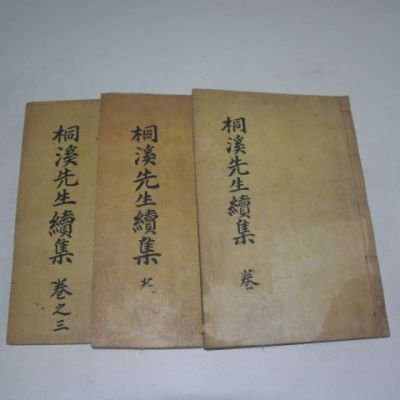 桐溪先生續集 卷之三
桐溪先生續集
桐溪先生續集 卷